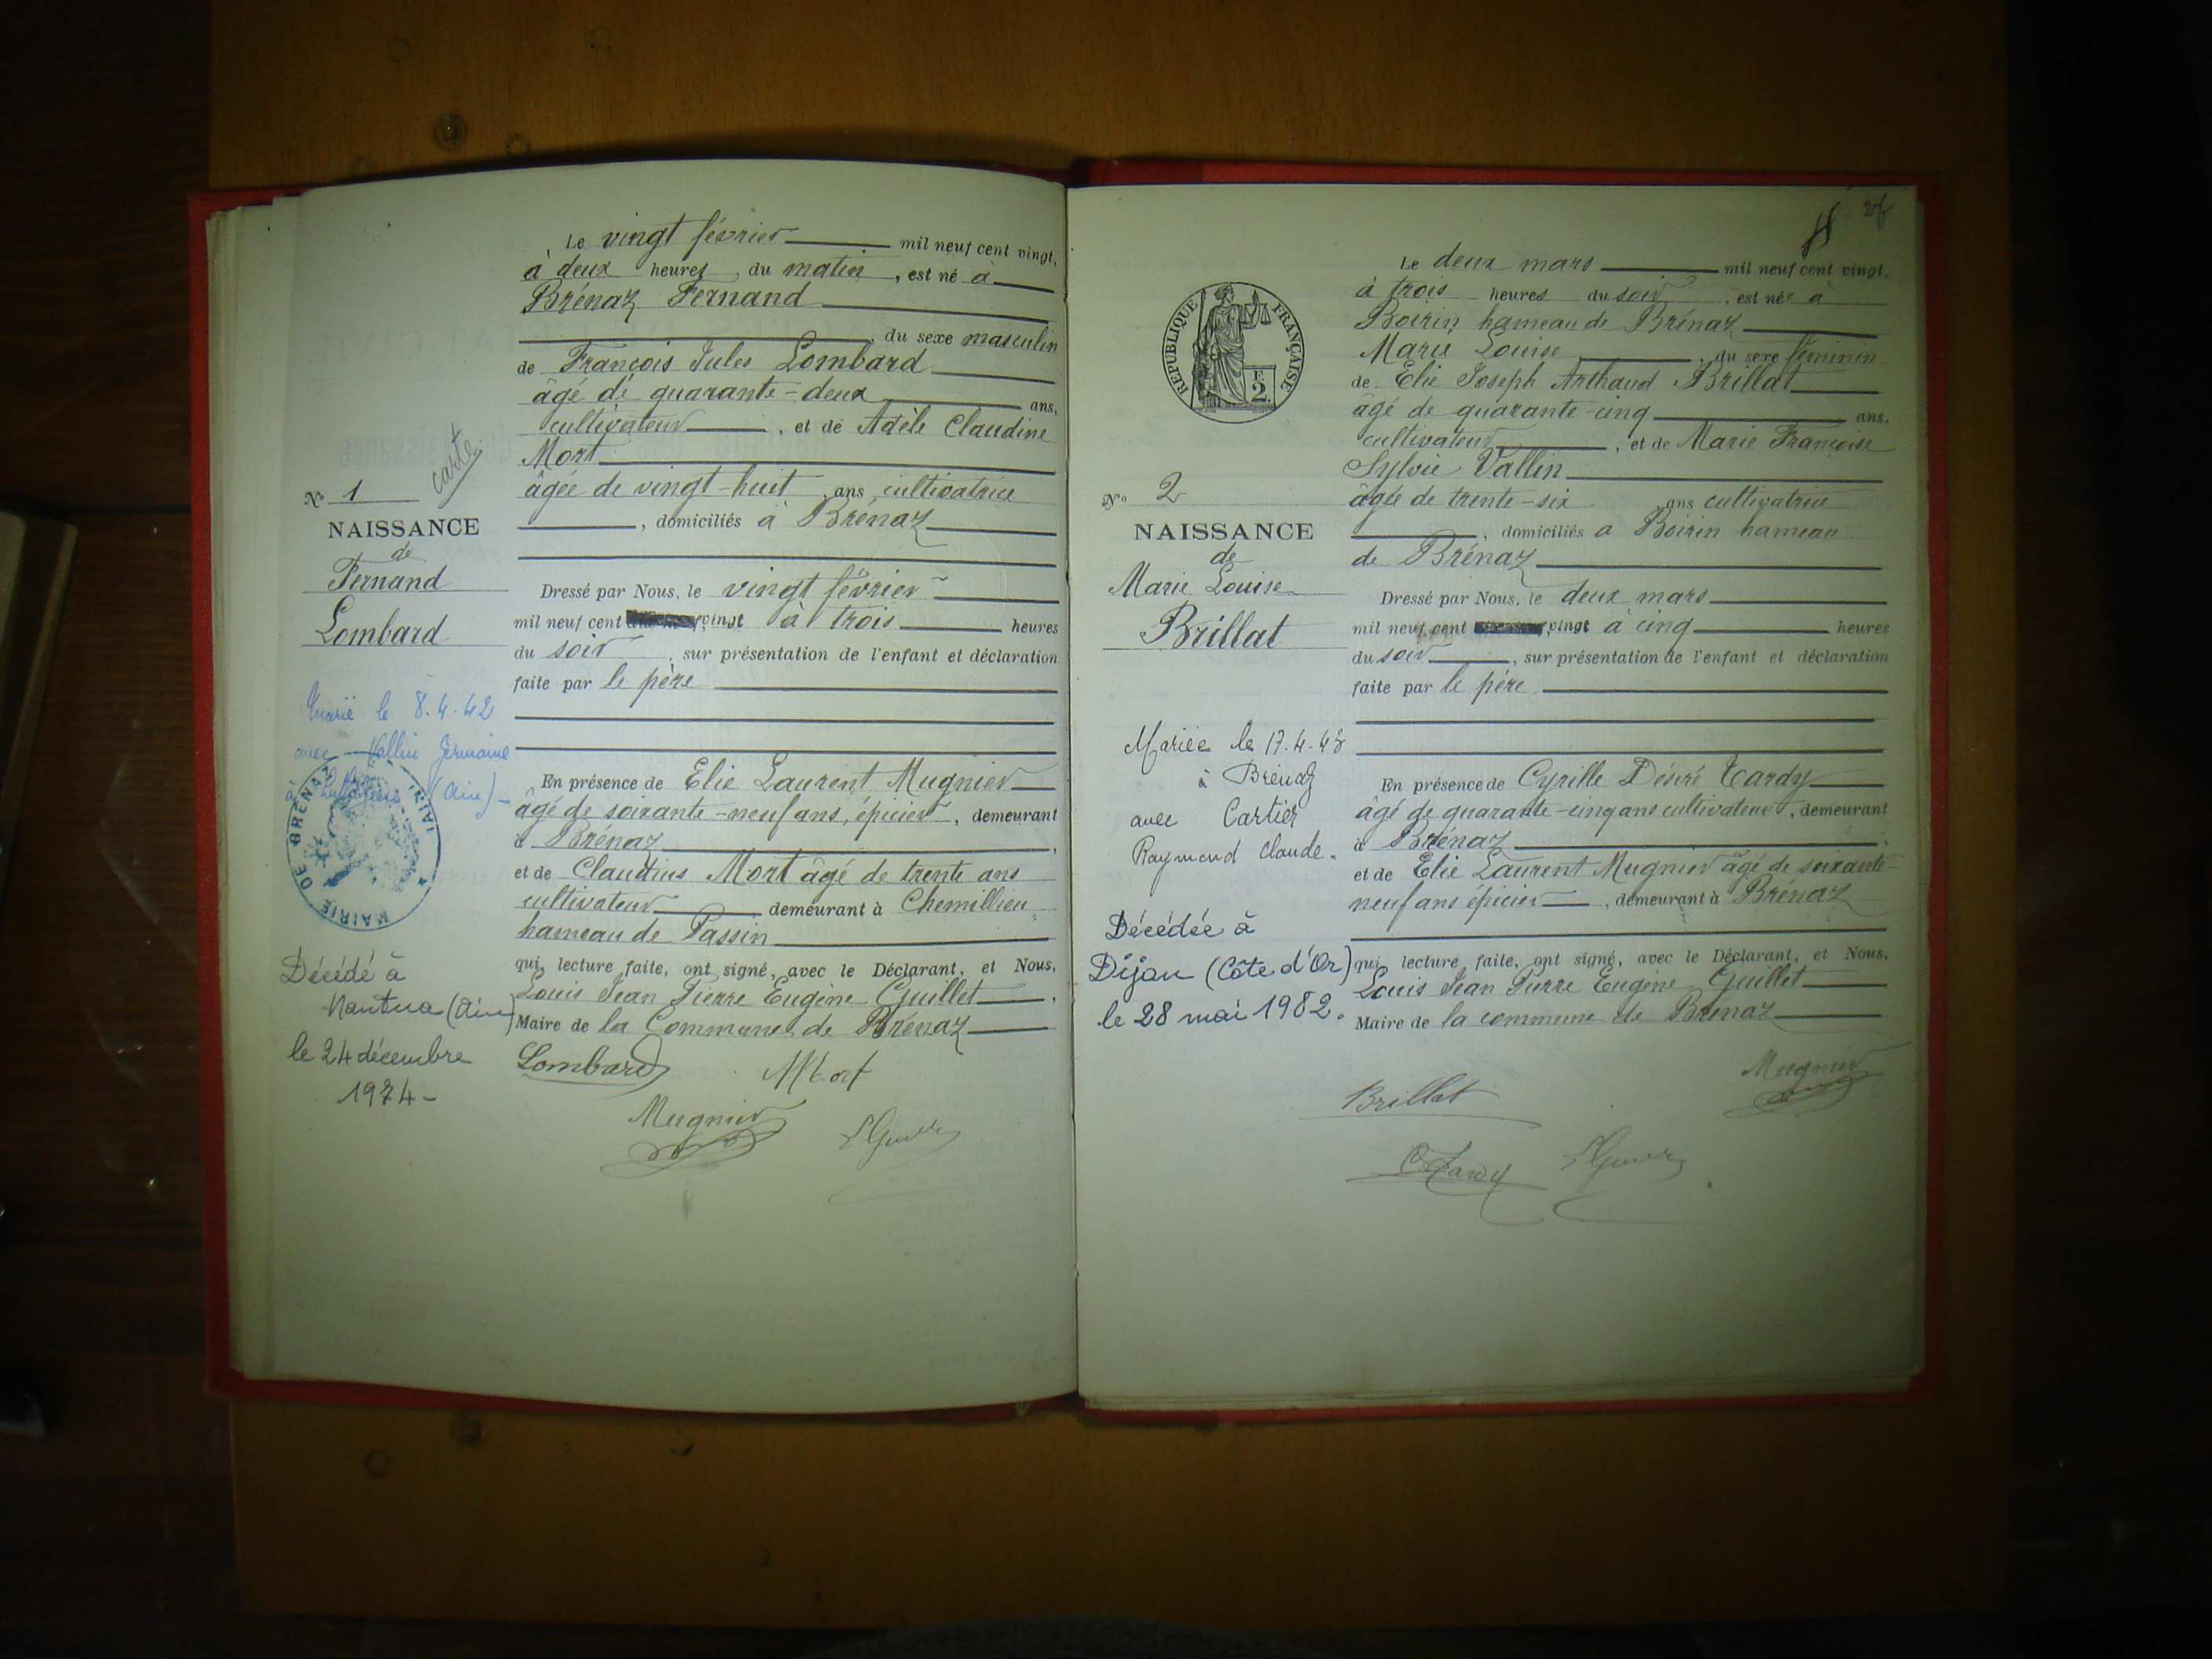 Le vingt février mil neuf cent vingt,
à deux heures du matin, est né à
Brénaz Fernand
, du sexe masculin
de François Jules Lombard
âgé de quarante-deux ans,
cultivateur, et de Adèle Claudine
Mort
âgée de vingt-huit ans cultivatrice
, domiciliés à Brénaz
Dressé par Nous, le vingt février
mil neuf cent vingt à trois heures
du soir, sur présentation de l'enfant et déclaration
faite par le père
En présence de Elie Laurent Mugnier
âgé de soixante-neuf ans, épicier, demeurant
à Brénaz,
et de Claudius Mort âgé de trente ans
cultivateur demeurant à Chemillieu
hameau de Passin
qui, lecture faite, ont signé, avec le Déclarant, et Nous,
Louis Jean Pierre Eugène Guillet,
Maire de la Commune de Brénaz
Lombard Mort
Mugnier
carte
N° 1
NAISSANCE
de
Fernand
Lombard
Marié le 8.4.42
avec Vallin Germaine
à (Ain)
MAIRIE DE BRENAZ (AIN)
Décédé à
Nantua (Ain)
le 24 décembre
1974
RÉPUBLIQUE FRANÇAISE
F.
2.
N° 2
NAISSANCE
de
Marie Louise
Brillat
Mariée le 17.4.48
à Brénaz
avec Cartier
Raymond Claude.
Décédée à
Dijon (Côte d'Or)
le 28 mai 1982.
Le deux mars mil neuf cent vingt,
à trois heures du soir, est née à
Boirin hameau de Brénaz
Marie Louise, du sexe féminin
de Elie Joseph Arthaud Brillat
âgé de quarante-cinq ans,
cultivateur, et de Marie Françoise
Sylvie Vallin
âgée de trente-six ans cultivatrice
, domiciliés à Boirin hameau
de Brénaz
Dressé par Nous, le deux mars
mil neuf cent vingt à cinq heures
du soir, sur présentation de l'enfant et déclaration
faite par le père
En présence de Cyrille Désiré Tardy
âgé de quarante-cinq ans cultivateur, demeurant
à Brénaz,
et de Elie Laurent Mugnier âgé de soixante-
neuf ans épicier, demeurant à Brénaz
qui, lecture faite, ont signé, avec le Déclarant, et Nous,
Louis Jean Pierre Eugène Guillet
Maire de la commune de Brénaz
Mugnier
Brillat
C Tardy